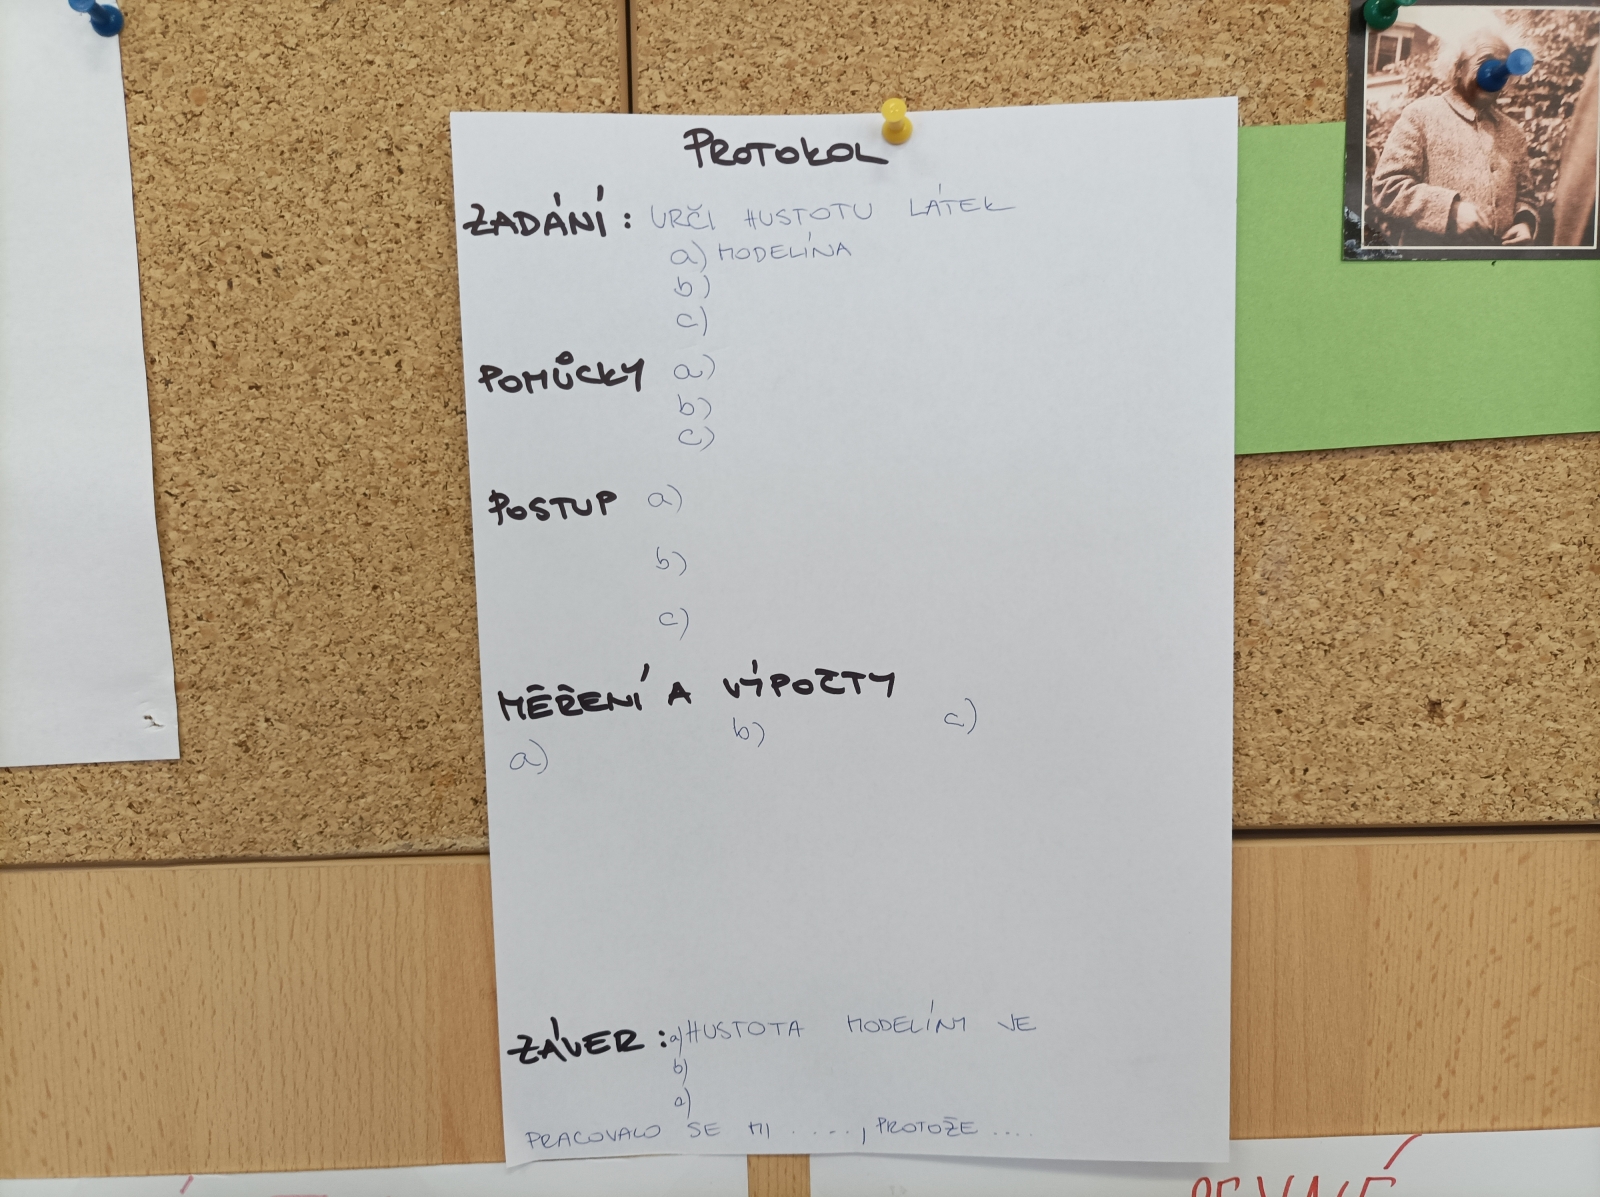 PROTOKOL
ZADÁNÍ: URČI HUSTOTU LÁTEK
a) MODELÍNA
b)
c)
POMŮCKY a)
b)
c)
POSTUP a)
b)
c)
MĚŘENÍ A VÝPOČTY
a) b) c)
ZÁVER: a) HUSTOTA MODELÍNY JE
b)
a)
PRACOVALO SE MI ...., PROTOŽE ....